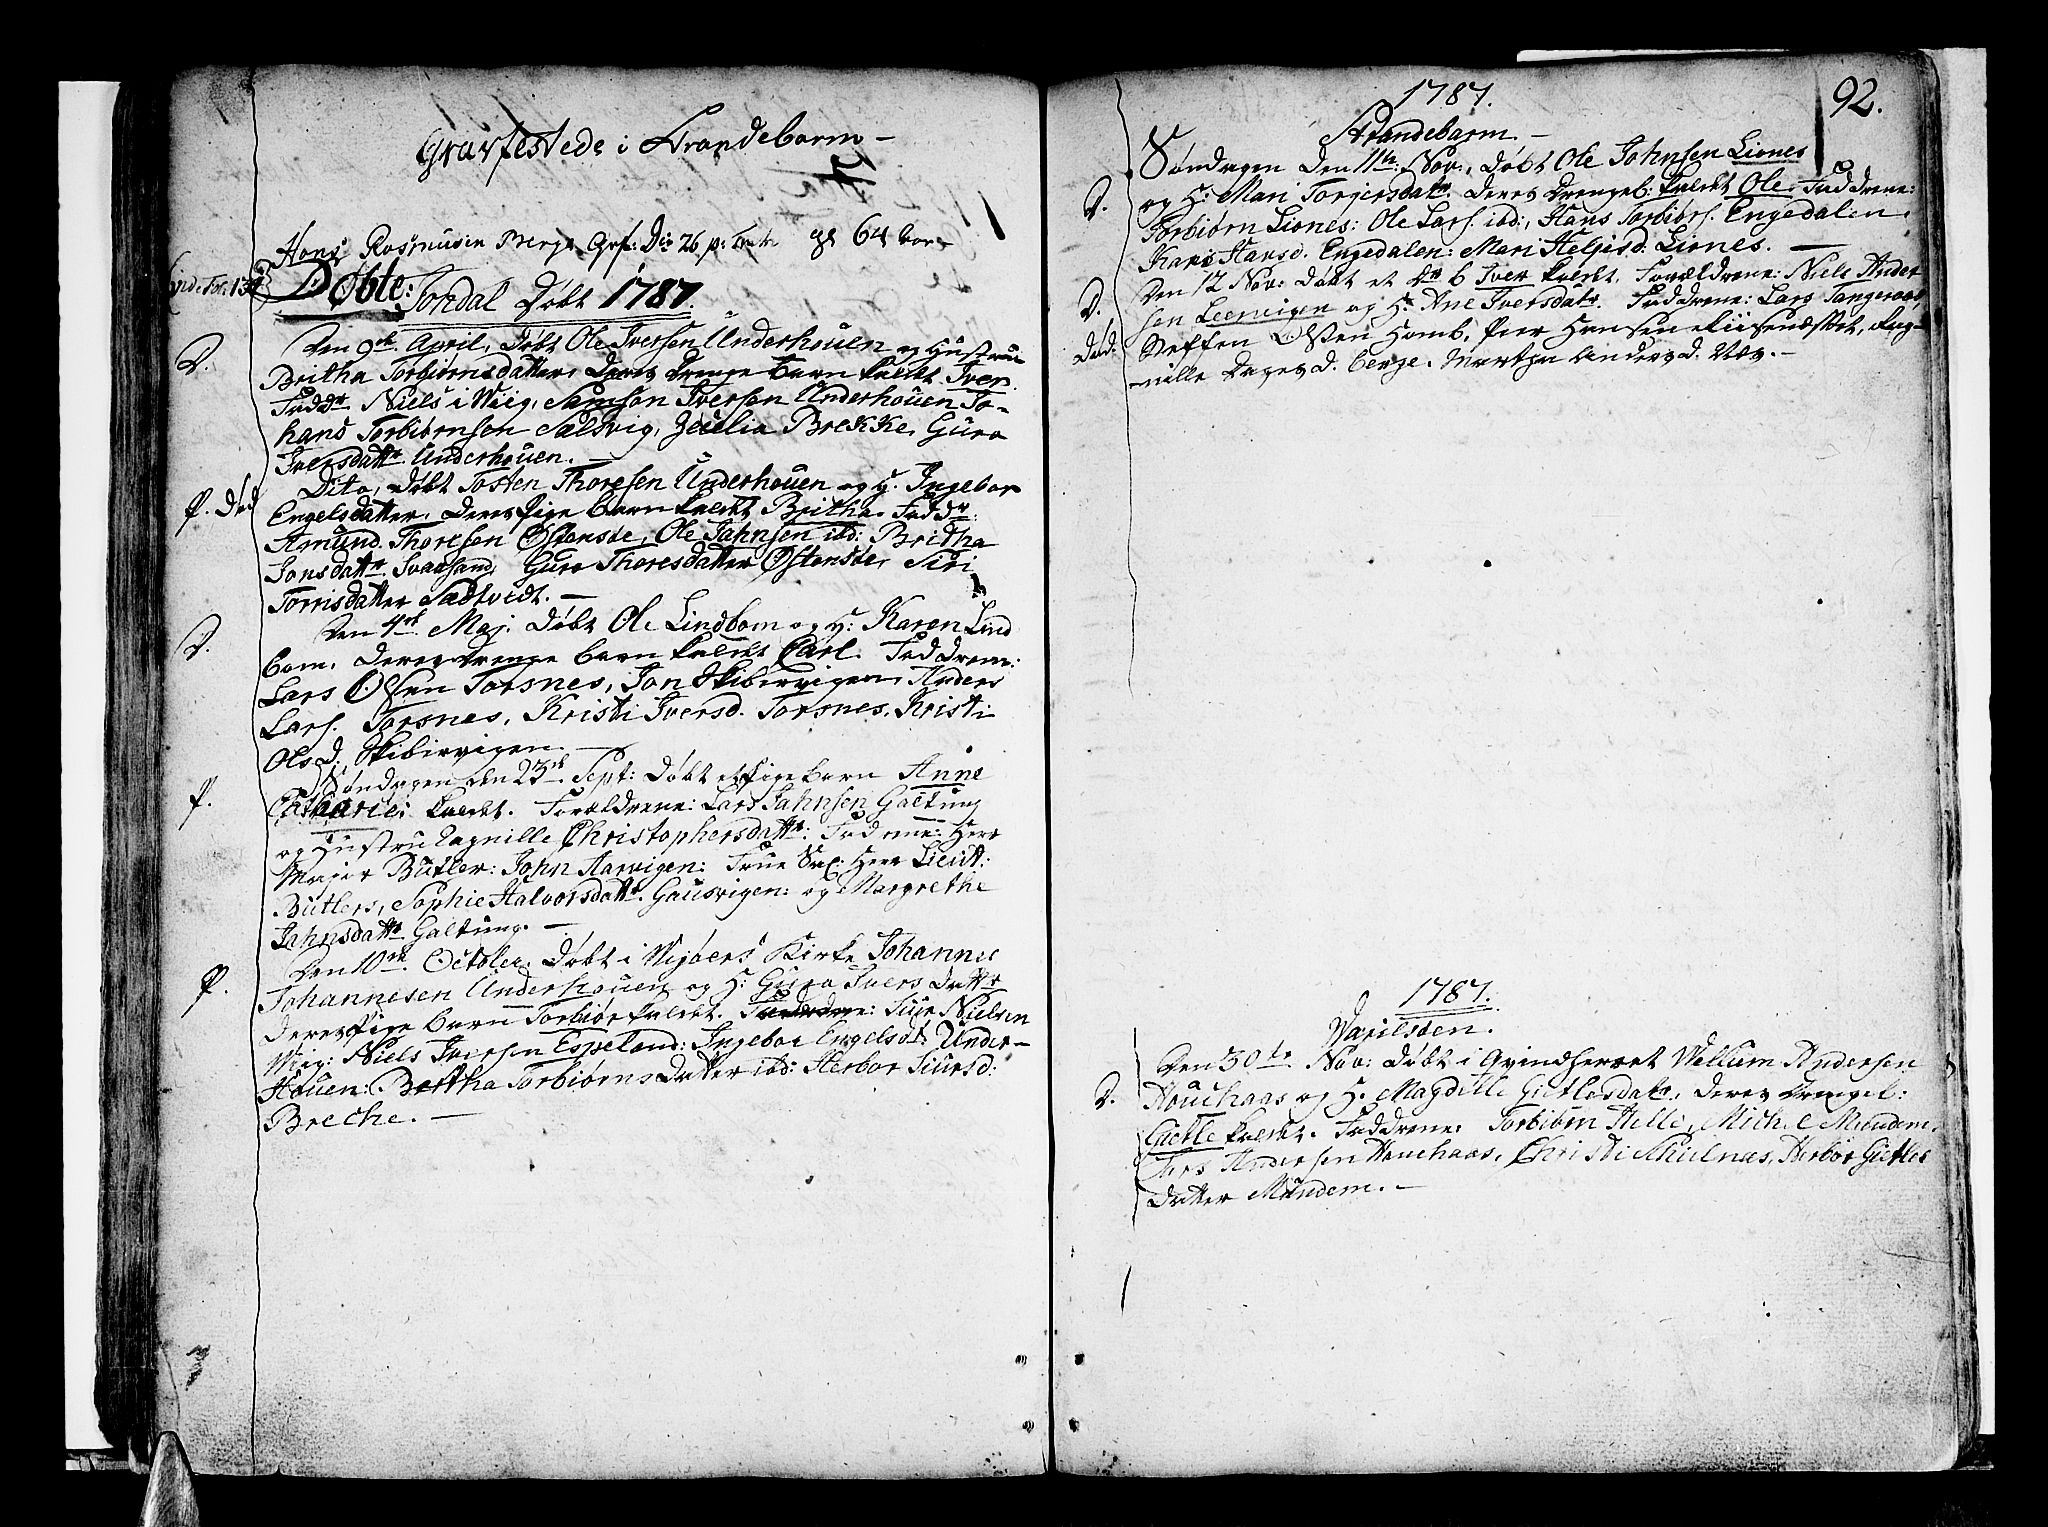 Gravfestede i Strandebarm –
Hans Rasmusen Berge Grf: D: 26 p: Trin: gl 64 aar
Vid. Fol. 131
Døbte:
Jondal Døbt 1787.
D. Den 9de April, Døbt Ole Iversen Underhouen og Hustrue
Britha Torbiørnsdatter, Deres Drenge Barn kaldet Iver.
Faddr Niels i Wiig, Samson Iversen Underhouen Jo-
hans Torbiørnsen Saltvig, Zecilia Brekke, Guro
Iversdattr Underhouen. –
P. Død Dito, Døbt Tosten Thoresen Underhouen og H. Ingebor
Engelsdatter, Deres Pige Barn kaldet Britha. Faddr:
Amund Thoresen Østensøe, Ole Jahnsen ibd: Britha
Jonsdattr Svaasand, Guro Thoresdatter Østensøe, Siri
Torrisdatter Sædtvedt. –
D. Den 4de Maj. Døbt Ole Lindbom og H: Karen Lind
bom, Deres Drenge Barn kaldet Carl. Faddrene:
Lars Olsen Torsnes, Jon Skibervigen, Anders
Lars. Torsnes, Kristi Iversd. Torsnes, Kristi
Olsd. Skibervigen. –
P. Søndagen den 23de Sept: Døbt et Pige Barn Anne
Catharie: kaldet. Forældrene: Lars Jahnsen Galtung
og Hustru Ragnille Christophersdattr: Faddrene: Herr
Major Bütler: John Aarvigen: Frue Sal: Herr Lieut:
Bütlers, Sophie Halvorsdattr. Gausvigen: og Margrethe
Jahnsdattr Galtung. –
P. Den 10de October, Døbt i Wigøers Kirke Johannes
Johannesen Underhouen og H: Guro Ivers Dattr
Deres Pige Barn Torbiør kaldet. Faddrene: Siur Nielsen
Wiig: Niels Iversen Espeland: Ingebor Engelsdt Under-
Houen: Bertha Torbiørns Datter ibd: Herbor Siursd:
Breche. –
92.
1787.
Strandebarm. –
D. Søndagen den 11te Nov., Døbt Ole Johnsen Liones
og H: Mari Torgersdatr. Deres Drengeb: kaldet Ole. Faddrene:
Torbiørn Liones: Ole Lars. ibd:, Hans Torbiørs. Engedalen.
Kari Hansd. Engedalen: Mari Heljesd: Liones. –
D. Den 12 Nov: Døbt et Dr B Iver kaldet. Forældrene: Niels Ander
sen Leervigen og H: Ane Iversdatr. Faddrene: Lars Tangeraas,
Død. Steffen Olsen Hamb, Peer Hansen Riisenæsset, Rag-
nille Dages d. Berge. Martha Anders d. Næs. –
1787.
Varilsøen.
D. Den 30te Nov: Døbt i Qvindherret Wellum Andersen
Houchaas og H. Magdille Gietlesdatr. Deres Drengeb:
Gietle kaldet. Faddrene: Torbiørn Helle, Michel Mundem,
Lars Andersen Houchaas, Christi Skielnæs, Herbor Gietles
Datter Mundem. –